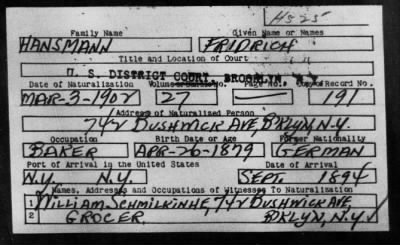 H525
Family Name Given Name or Names
HANSMANN FRIDRICH
Title and Location of Court
U. S. DISTRICT COURT, BROOKLYN, N.Y.
Date of Naturalization Volume or Bundle No. Page No. Copy of Record No.
MAR-3-1902 27 — 191
Address of Naturalized Person
742 BUSHWICK AVE, BKLYN, N.Y.
Occupation Birth Date or Age Former Nationality
BAKER APR-26-1879 GERMAN
Port of Arrival in the United States Date of Arrival
N.Y. N.Y. SEPT. 1894
Names, Addresses and Occupations of Witnesses To Naturalization
1 WILLIAM SCHMILKINHE, 742 BUSHWICK AVE
2 GROCER. BKLYN, N.Y.